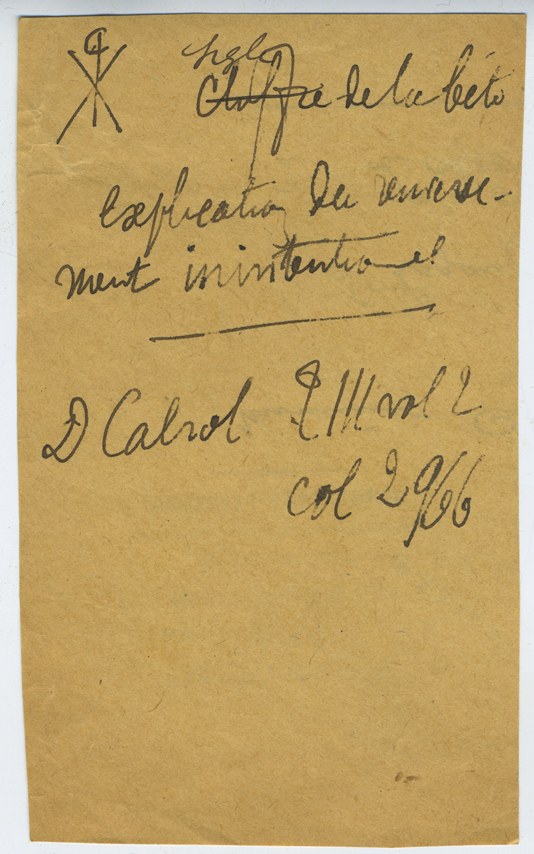 sigle
Chiffre de la bête
explication du renverse-
ment inintentionel
D Cabrol t III vol 2
col 2966